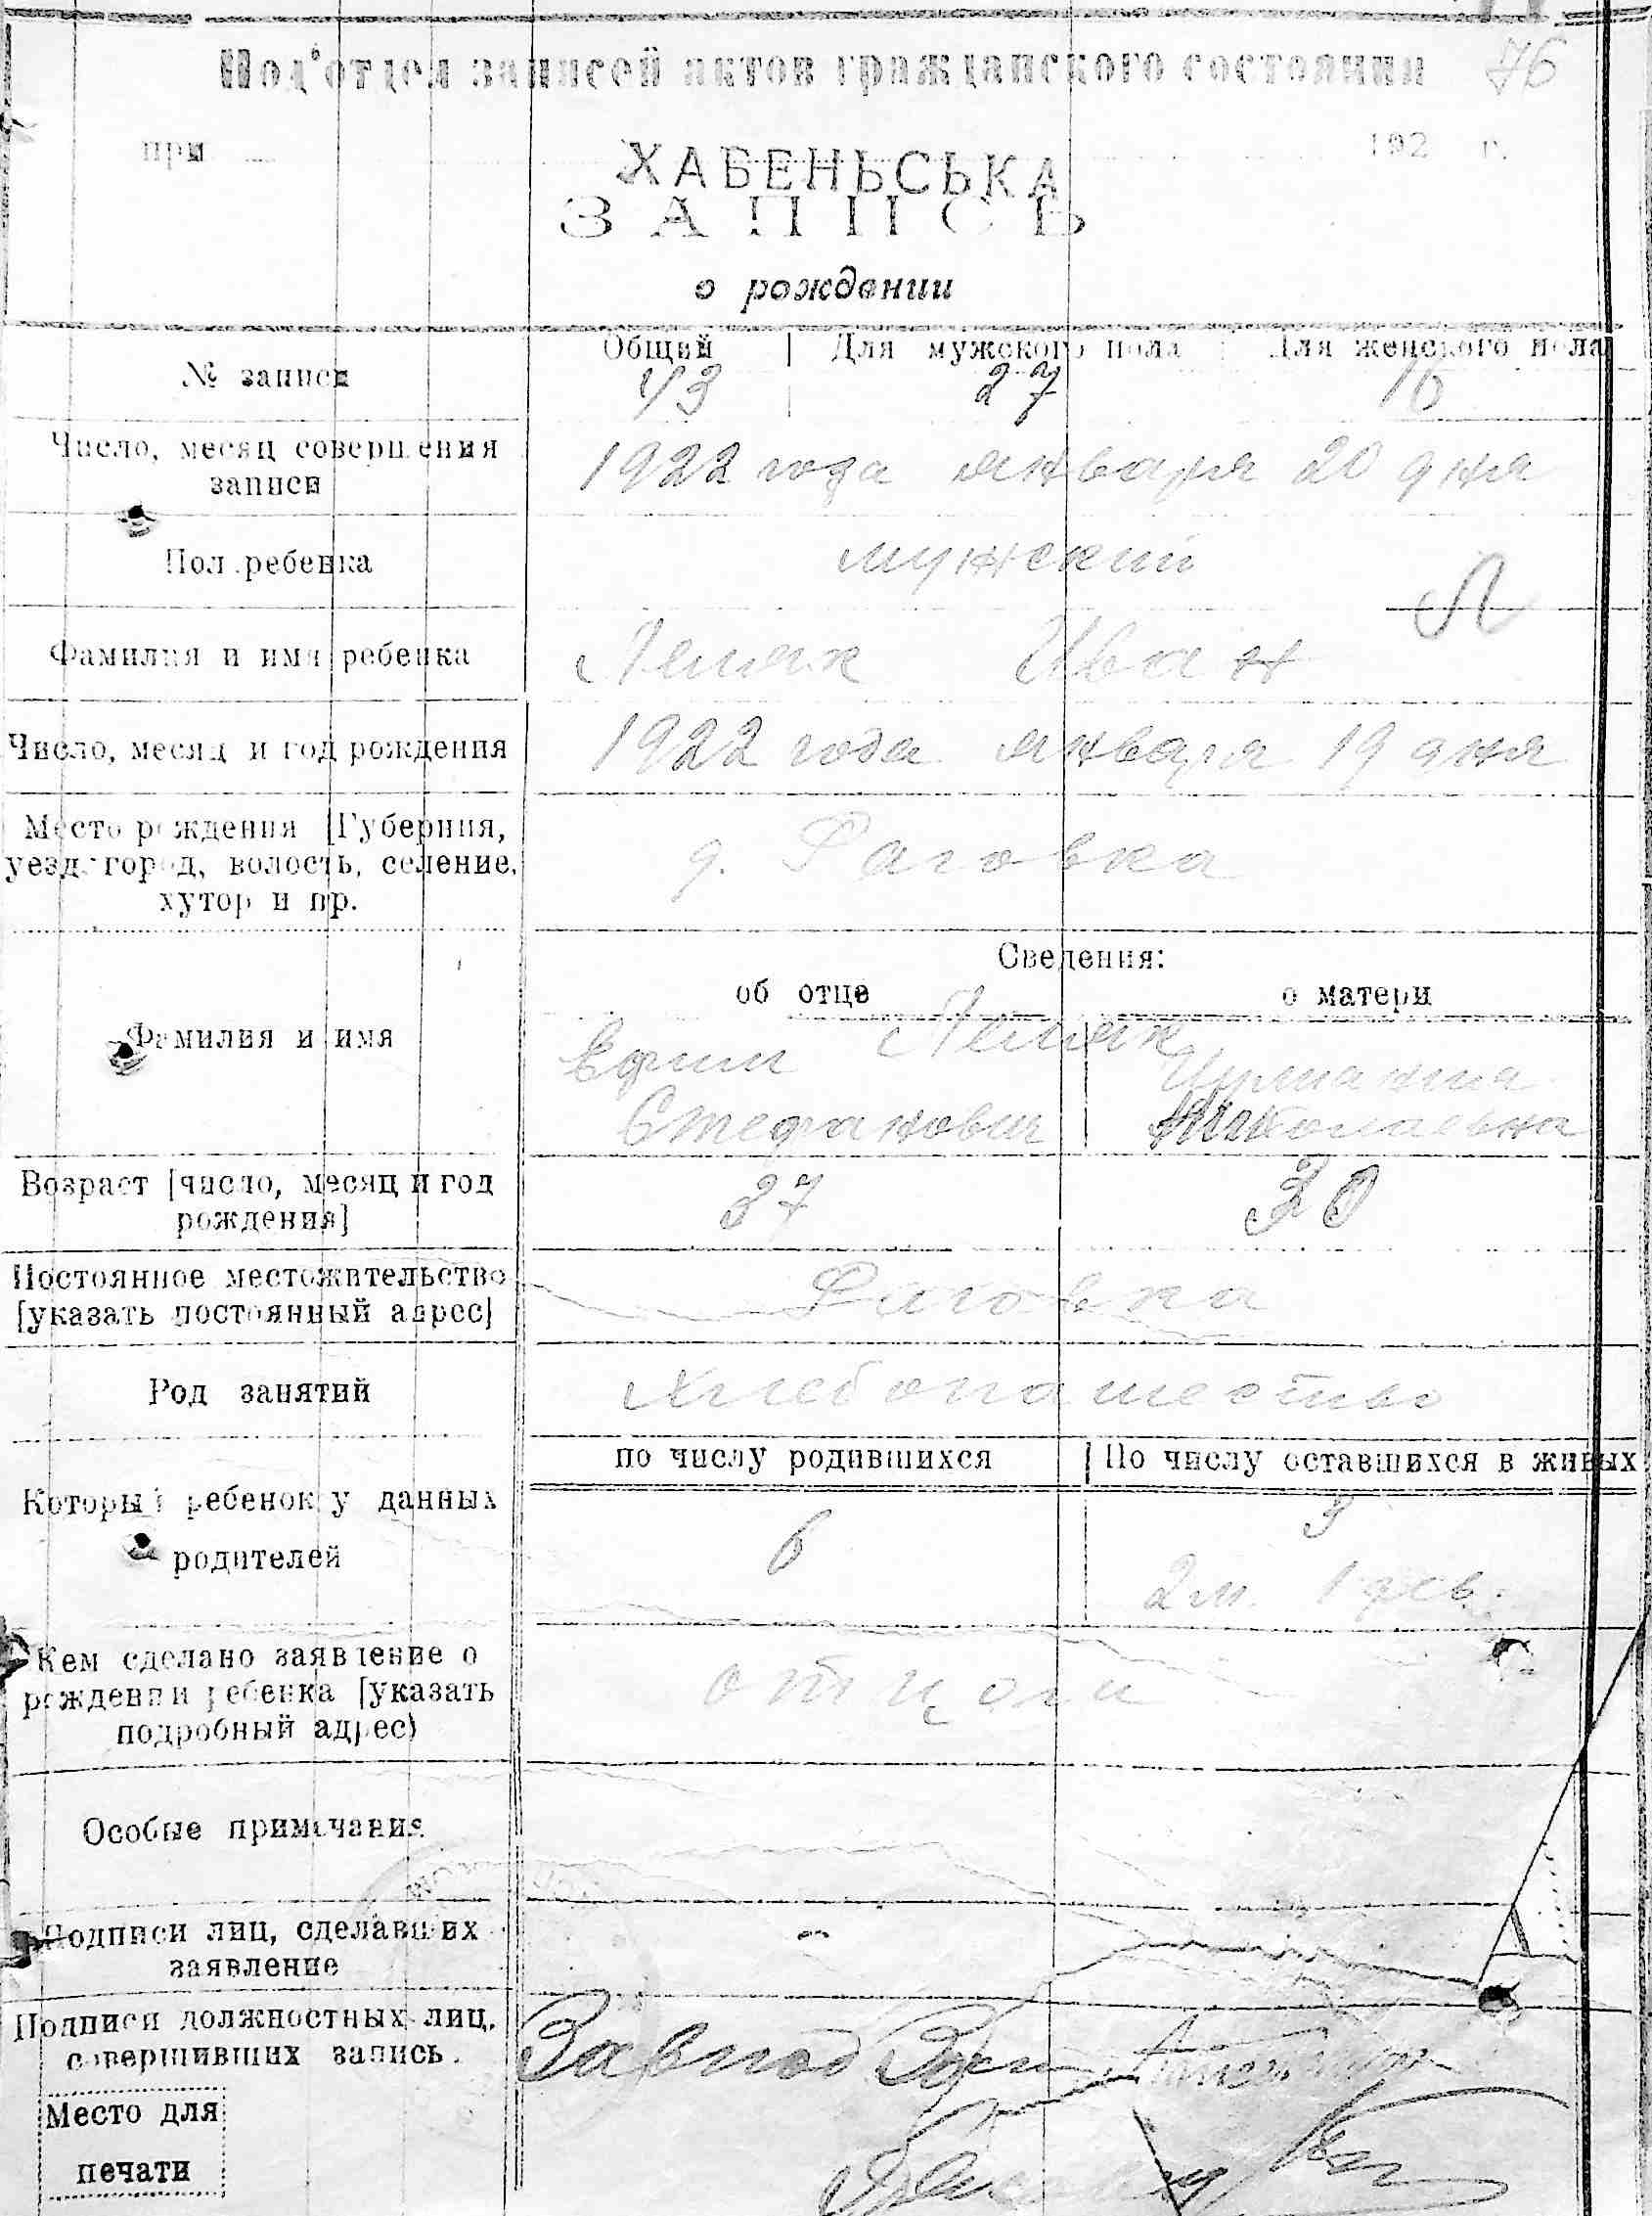 76
Под'отдел записей актов гражданского состояния
при 192 г.
ХАБЕНЬСЬКА
ЗАПИСЬ
о рождении
Общий Для мужского пола Для женского пола
№ записи 43 27 16
Число, месяц совершения
записи
1922 года января 20 дня
Пол ребенка мужский
Л
Фамилия и имя ребенка Ляшек Иван
Число, месяц и год рождения 1922 года января 19 дня
Место рождения [Губерния,
уезд, город, волость, селение,
хутор и пр.
д. Раговка
Сведения:
об отце о матери
Фамилия и имя
Ефим
Стефанович
Николаевна
Возраст [число, месяц и год
рождения]
37 30
Постоянное местожительство
[указать постоянный адрес]
Раговка
Род занятий хлебопашество
по числу родившихся По числу оставшихся в живых
Который ребенок у данных
родителей
6 3
2 м. 1 дев.
Кем сделано заявление о
рождении ребенка [указать
подробный адрес)
отцом
Особые примечания
Подписи лиц, сделавших
заявление
Подписи должностных лиц,
совершивших запись.
Завпод
Место для
печати